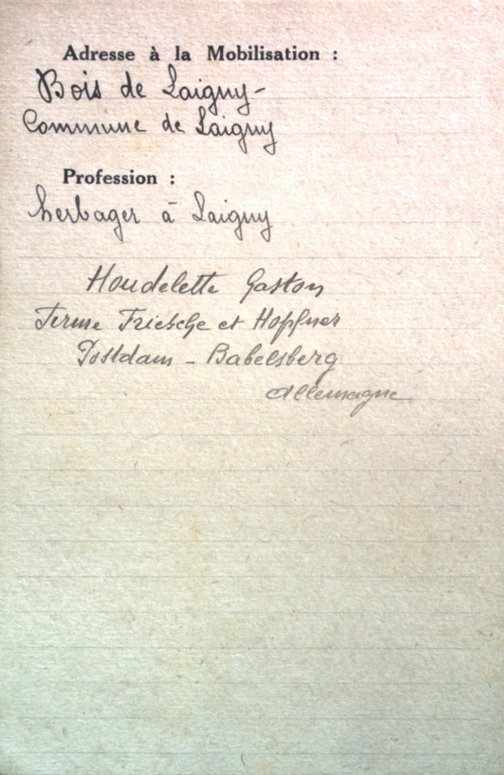 Adresse à la Mobilisation :
Bois de Laigny-
Commune de Laigny
Profession :
herbager à Laigny
Houdelette Gaston
Ferme Friesche et Hopfner
Postdam - Babelsberg
Allemagne